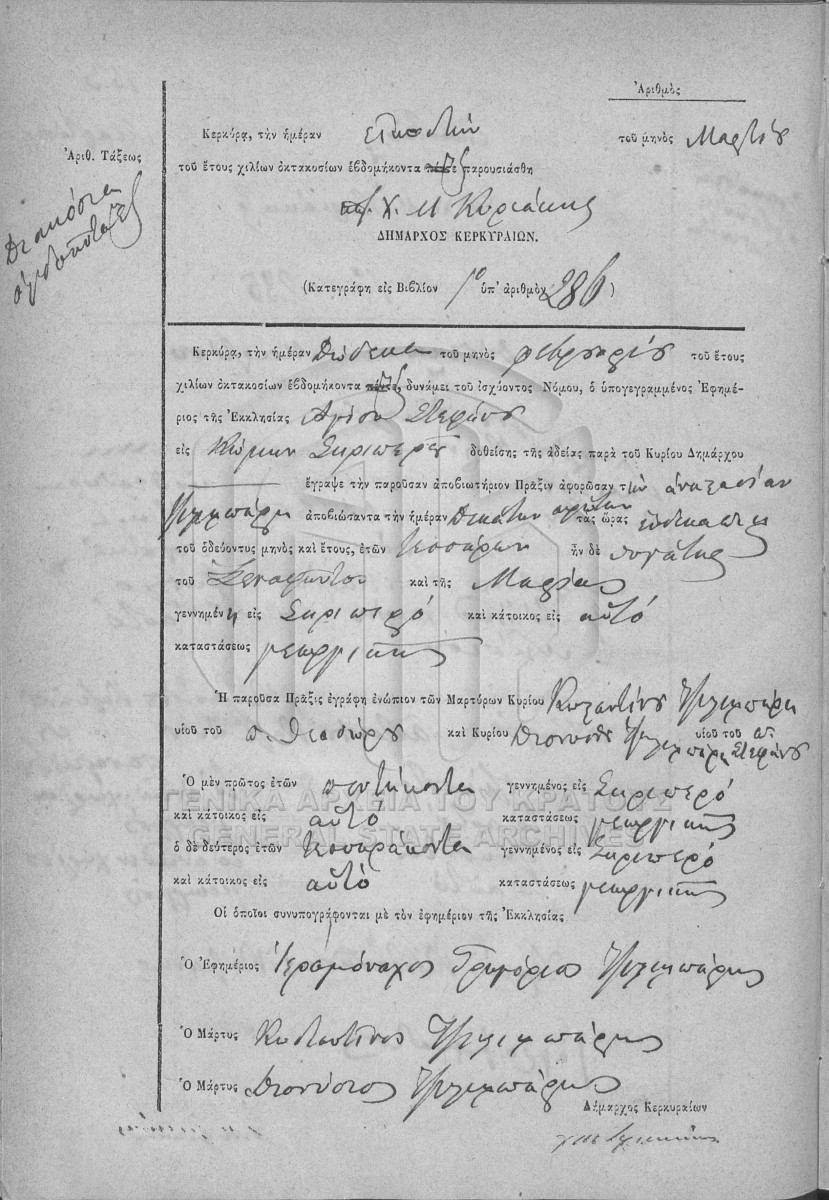 Ἀριθμὸς
Κερκύρᾳ, τὴν ἡμέραν εἰκοστὴν τοῦ μηνὸς Μαρτίου
Ἀριθ. Τάξεως
τοῦ ἔτους χιλίων ὀκτακοσίων ἑβδομήκοντα πέντε ἓξ παρουσιάσθη
Διακόσια
ὀγδοῆντα ἓξ
Χ. Μ Κυριάκης
ΔΗΜΑΡΧΟΣ ΚΕΡΚΥΡΑΙΩΝ.
(Κατεγράφη εἰς Βιβλίον 1ο ὑπ' ἀριθμὸν 286)
Κερκύρᾳ, τὴν ἡμέραν Δώδεκα τοῦ μηνὸς φεβρουαρίου τοῦ ἔτους
χιλίων ὀκτακοσίων ἑβδομήκοντα πέντε ἓξ, δυνάμει τοῦ ἰσχύοντος Νόμου, ὁ ὑπογεγραμμένος Ἐφημέ-
ριος τῆς Ἐκκλησίας Ἁγίου Στεφάνου
εἰς Κώμην Σκριπεροῦ δοθείσης τῆς ἀδείας παρὰ τοῦ Κυρίου Δημάρχου
ἔγραψε τὴν παροῦσαν ἀποβιωτήριον Πρᾶξιν ἀφορῶσαν τὴν ἀναστασίαν
Τζιλιμπάρη ἀποβιώσαντα τὴν ἡμέραν Δεκάτην πρώτην τὰς ὥρας ἕνδεκα π μ
τοῦ ὁδεύοντος μηνὸς καὶ ἔτους, ἐτῶν τεσσάρων ἦν δὲ θυγάτηρ
τοῦ Ξενοφῶντος καὶ τῆς Μαρίας
γεννημένη εἰς Σκριπερό καὶ κάτοικος εἰς αὐτό
καταστάσεως γεωργικῆς
Ἡ παροῦσα Πρᾶξις ἐγράφη ἐνώπιον τῶν Μαρτύρων Κυρίου Κωσταντίνου Τζιλιμπάρη
υἱοῦ τοῦ π. Θεοδώρου καὶ Κυρίου Διονυσίου Τζιλιμπάρη υἱοῦ τοῦ π. Στεφάνου
Ὁ μὲν πρῶτος ἐτῶν πεντήκοντα γεννημένος εἰς Σκριπερό
ΓΕΝΙΚΑ ΑΡΧΕΙΑ ΤΟΥ ΚΡΑΤΟΥΣ
καὶ κάτοικος εἰς αὐτό καταστάσεως γεωργικῆς
GENERAL STATE ARCHIVES
ὁ δὲ δεύτερος ἐτῶν τεσσαράκοντα γεννημένος εἰς Σκριπερό
καὶ κάτοικος εἰς αὐτό καταστάσεως γεωργικῆς
Οἱ ὁποῖοι συνυπογράφονται μὲ τὸν ἐφημέριον τῆς Ἐκκλησίας
Ὁ Ἐφημέριος Ἱερομόναχος Γρηγόριος Τζιλιμπάρης
Ὁ Μάρτυς Κοσταντῖνος Τζιλιμπάρης
Ὁ Μάρτυς Διονύσιος Τζιλιμπάρης
Δήμαρχος Κερκυραίων